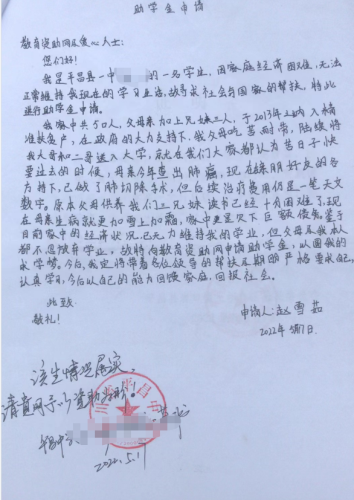 助学金申请
教育资助网及爱心人士:
您们好!
我是平昌县一中 的一名学生,因家庭经济困难,无法
正常维持我现在的学习生活,故寻求社会与国家的帮扶,特此
进行助学金申请。
我家中共5口人,父母亲加上兄妹三人,于2013年纳入精
准扶贫户,在政府的大力支持下,我父母吃苦耐劳,陆续将
我大哥和二哥送入大学,就在我们大家都认为苦日子快
要过去的时候,母亲今年查出肺癌,现在亲朋好友的各
方持下,已做了肺切除手术,但后续治疗费用仍是一笔天文
数字。原本父母供养我们三兄妹读书已经十有困难了,现
在母亲生病就更加雪上加霜,家中更是欠下巨额债务,鉴于
目前家中的经济状况,已无力维持我的学业,但父母及我本人
都不想放弃学业,故特向教育资助网申请助学金,以圆我的
求学梦。今后,我定将带着各位领导的帮扶及期盼严格要求自己,
认真学习,今后以自己的能力回馈家庭,回报社会。
此致
敬礼!
申请人:赵雪茹
2022年5月1日
该生情况属实,
请贵网予以资助为盼!
2022.5.1